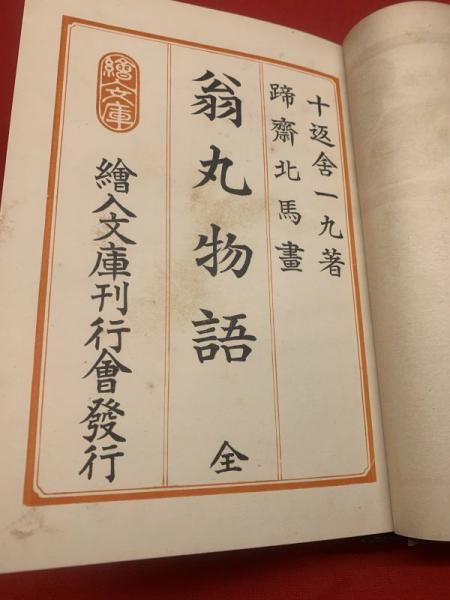 十返舍一九著
蹄齋北馬畫
翁丸物語 全
繪入文庫
繪入文庫刊行會發行